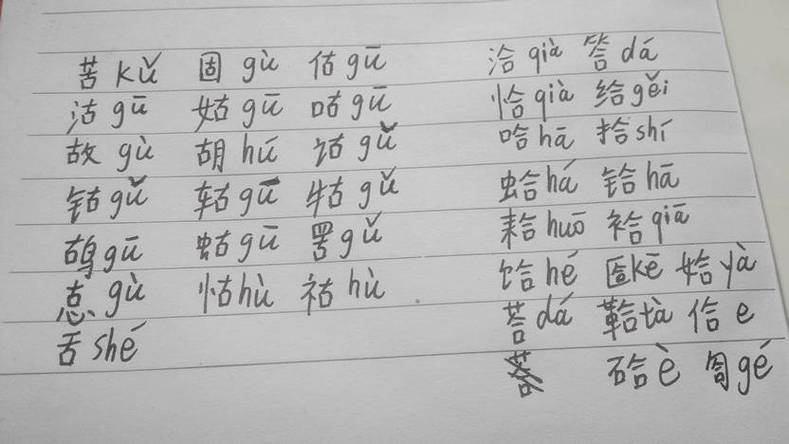 苦 kǔ 固 gù 估 gū
沽 gū 姑 gū 咕 gū
故 gù 胡 hú 诂 gǔ
钴 gǔ 轱 gū 牯 gǔ
鸪 gū 蛄 gū 罟 gǔ
怘 gù 怙 hù 祜 hù
舌 shé
洽 qià 答 dá
恰 qià 给 gěi
哈 hā 拾 shí
蛤 há 铪 hā
耠 huō 袷 qiā
饸 hé 匼 kē 姶 yà
荅 dá 鞈 tà 佮 e
硆 è 匌 gé